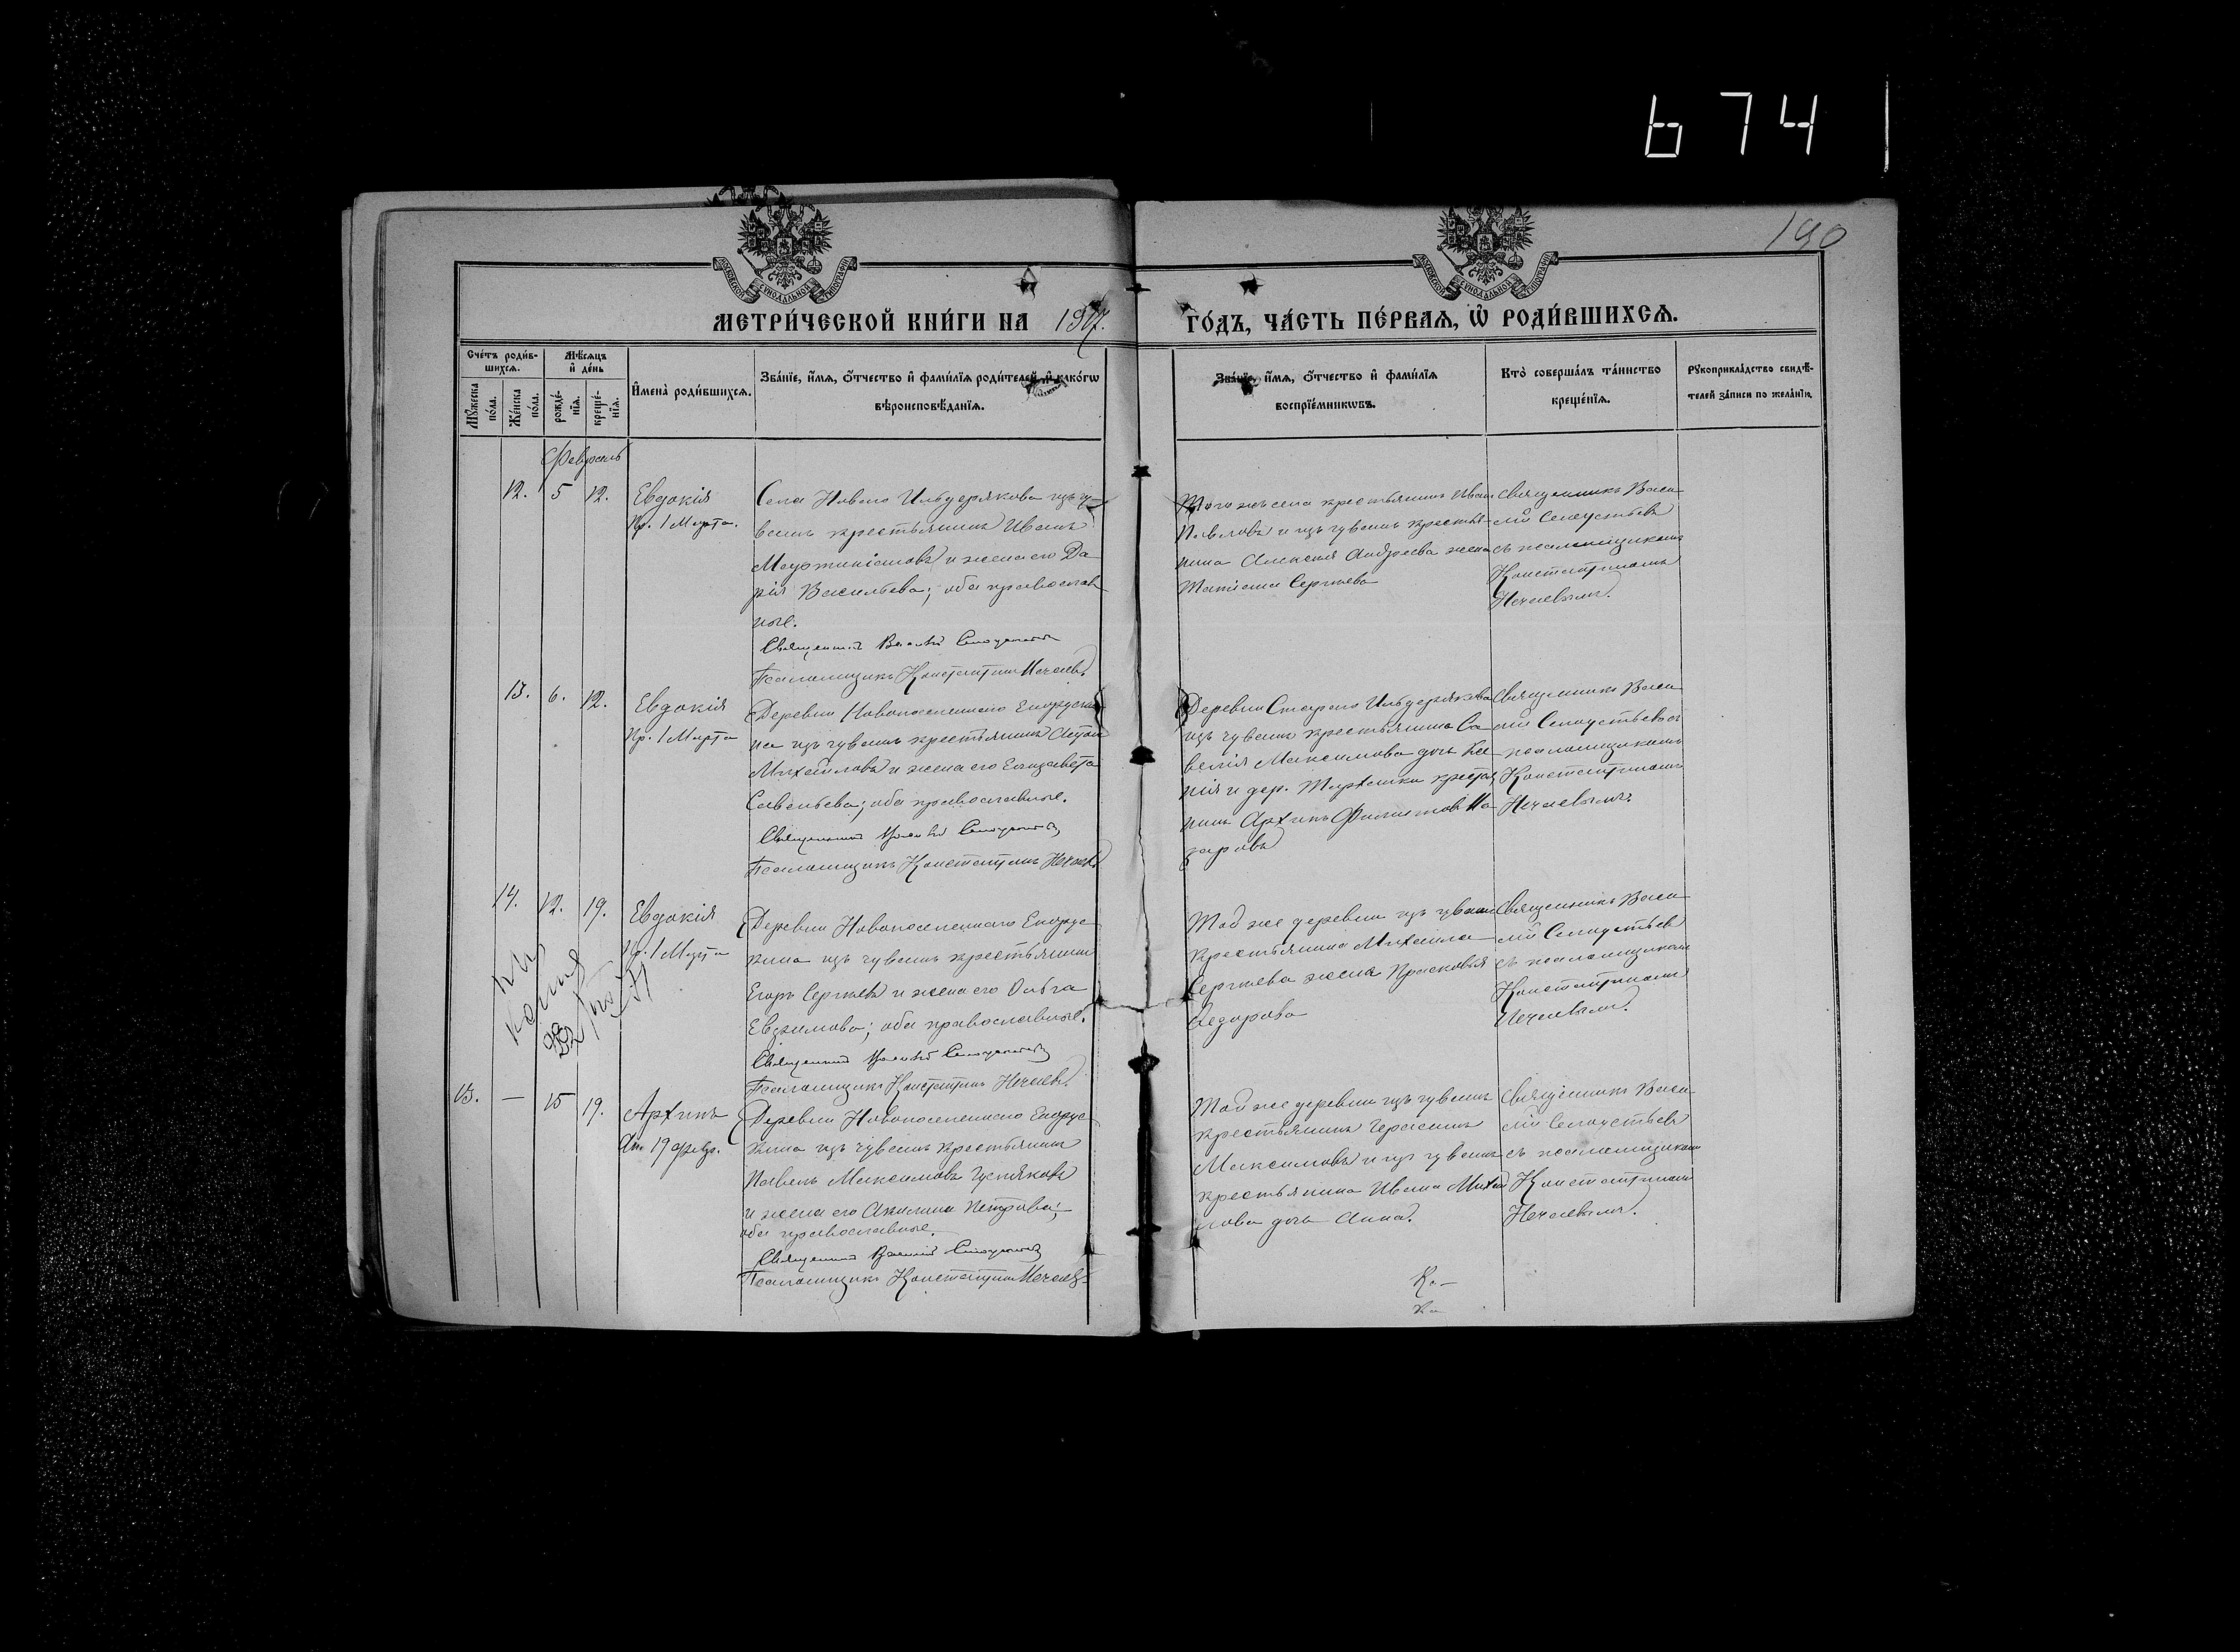 674
190
МОСКОВСКОЙ СУНОДАЛЬНОЙ ТИПОГРАФІИ
МОСКОВСКОЙ СУНОДАЛЬНОЙ ТИПОГРАФІИ
МЕТРИ́ЧЕСКОЙ КНИ́ГИ НА 1907.
ГО́ДЪ, ЧА́СТЬ ПЕ́РВАѦ, Ѽ РОДИ́ВШИХСѦ.
Сче́тъ роди́в-
шихсѧ.
Мѣ́сѧцъ
и҆ де́нь
Мꙋ́жеска
по́ла.
Же́нска
по́ла.
рожде́-
нїѧ.
креще́-
нїѧ.
И҆мена̀ роди́вшихсѧ.
Зва́нїе, и҆́мѧ, ѻ҆́тчество и҆ фами́лїѧ роди́телей, и҆ како́гѡ
вѣроисповѣ́данїѧ.
Зва́нїе, и҆́мѧ, ѻ҆́тчество и҆ фами́лїѧ
воспрїе́мникѡвъ.
Кто̀ соверша́лъ та́инство
креще́нїѧ.
Рꙋкоприкла́дство свидѣ́-
телей за́писи по жела́нїю.
Февраль
12. 5 12. Евдокія
Пр. 1 Марта.
Села Новаго Ильдерякова изъ чу-
вашъ крестьянинъ Иванъ
и жена его Да-
рія Васильева; оба православ
ные.
Священникъ Василій
Псаломщикъ Константинъ Нечаевъ
Того же села крестьянинъ Иванъ
Павловъ и изъ чувашъ крестья-
нина Алексѣя Андреева жена
Татіана Сергѣева
Священникъ Васи-
лій
съ псаломщикомъ
Константиномъ
Нечаевымъ.
13. 6. 12. Евдокія
Пр. 1 Марта
Деревни Новопоселеннаго
на изъ чувашъ крестьянинъ
Михайловъ и жена его Елизавета
Савельева; оба православные.
Священникъ Василій
Псаломщикъ Константинъ Нечаевъ
Деревни Стараго Ильдерякова
изъ чувашъ крестьянина Са-
велія Максимова дочь
нія и дер. крестья
нинъ Архипъ На-
заровъ
Священникъ Васи-
лій
псаломщикомъ
Константиномъ
Нечаевымъ.
14. 12. 19. Евдокія
Пр. 1 Марта
Деревни Новопоселеннаго
кина изъ чувашъ крестьянинъ
Егоръ Сергѣевъ и жена его Ольга
оба православные.
Священникъ Василій
Псаломщикъ Константинъ Нечаевъ.
Той же деревни изъ чувашъ
крестьянина Михаила
Сергѣева жена Прасковья
Ѳедорова
Священникъ Васи-
лій
съ псаломщикомъ
Константиномъ
Нечаевымъ.
13. — 15 19. Архипъ
19 февр.
Деревни Новопоселеннаго
кина изъ чувашъ крестьянинъ
Павелъ Максимовъ
и жена его Акилина Петрова;
оба православные.
Священникъ Василій
Псаломщикъ Константинъ Нечаевъ
Той же деревни изъ чувашъ
крестьянинъ Герасимъ
Максимовъ и изъ чувашъ
крестьянина Ивана Михай
лова дочь Анна.
Священникъ Васи-
лій
съ псаломщикомъ
Константиномъ
Нечаевымъ.